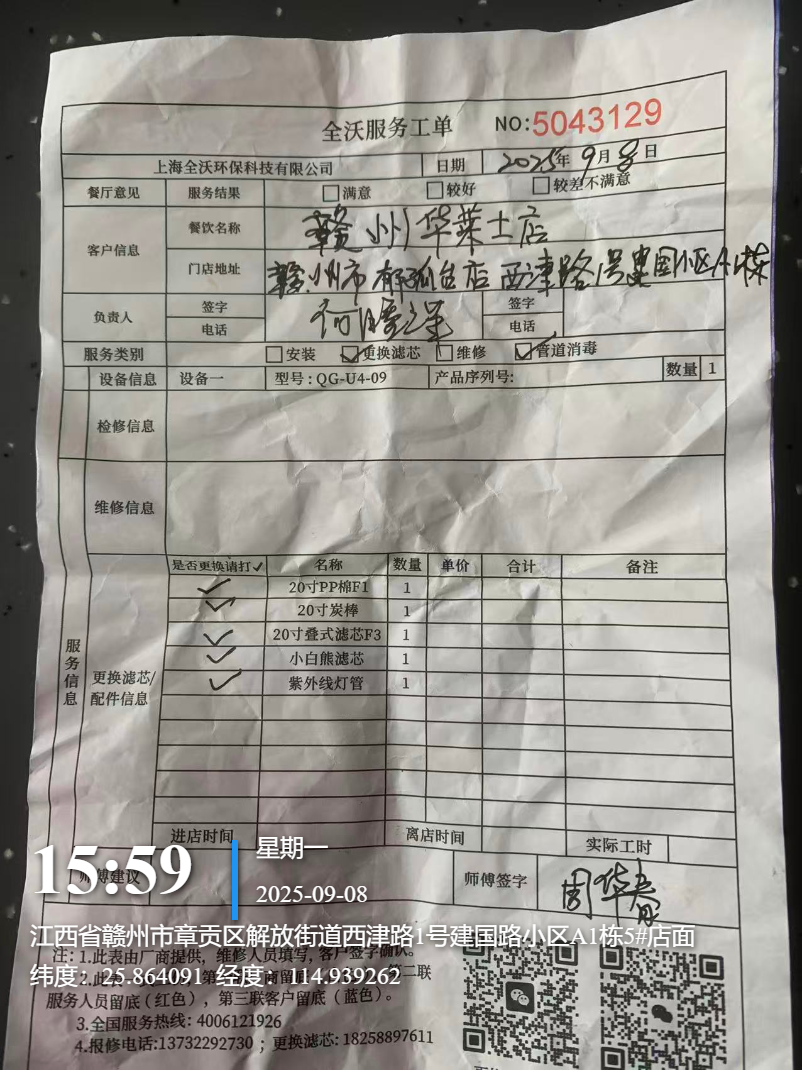 全沃服务工单 NO:5043129
上海全沃环保科技有限公司 日期 2025年9月8日
餐厅意见 服务结果 满意 较好 较差不满意
客户信息 餐饮名称 赣州华莱士店
门店地址 赣州市郁孤台店西津路1号建国小区A1栋
负责人 签字 签字
电话 电话
服务类别 安装 更换滤芯 维修 管道消毒
设备信息 设备一 型号:QG-U4-09 产品序列号: 数量 1
检修信息
维修信息
服务信息
更换滤芯/配件信息
是否更换请打✓ 名称 数量 单价 合计 备注
✓ 20寸PP棉F1 1
✓ 20寸炭棒 1
✓ 20寸叠式滤芯F3 1
✓ 小白熊滤芯 1
✓ 紫外线灯管 1
进店时间 离店时间 实际工时
师傅建议 师傅签字
15:59 星期一
2025-09-08
江西省赣州市章贡区解放街道西津路1号建国路小区A1栋5#店面
纬度：25.864091 经度：114.939262
注：1.此表由厂商提供，维修人员填写，客户签字确认。
服务人员留底（红色），第三联客户留底（蓝色）。
3.全国服务热线: 4006121926
4.报修电话:13732292730；更换滤芯: 18258897611